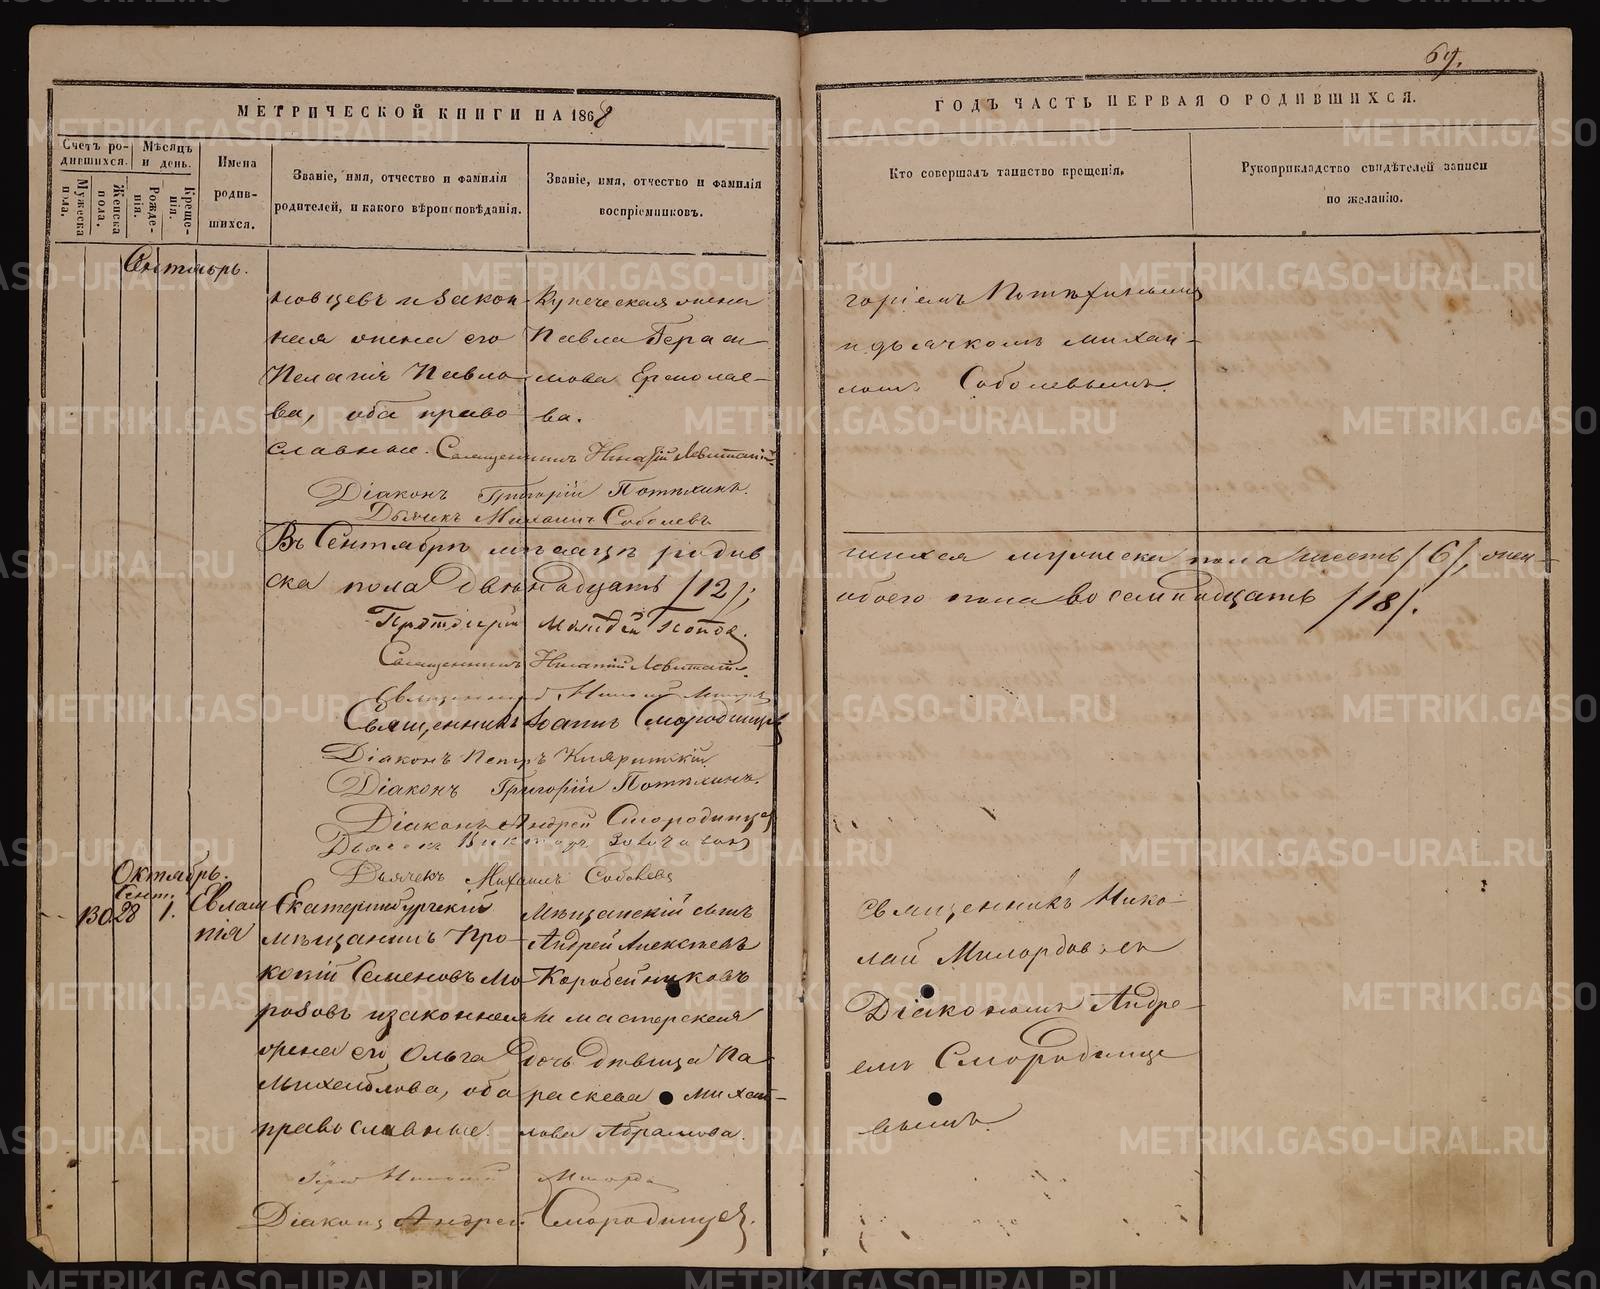 69.
МЕТРИЧЕСКОЙ КНИГИ НА 1868
ГОДЪ ЧАСТЬ ПЕРВАЯ О РОДИВШИХСЯ.
Счетъ родившихся.
Мужеска пола.
Женска пола.
Мѣсяцъ и день.
Рожденія.
Крещенія.
Имена родившихся.
Званіе, имя, отчество и фамилія
родителей, и какого вѣроисповѣданія.
Званіе, имя, отчество и фамилія
воспріемниковъ.
Кто совершалъ таинство крещенія.
Рукоприкладство свидѣтелей записи
по желанію.
Сентябрь.
новцевъ и закон
ная жена его
Пелагія Павло
ва, оба право
славные.
Купеческая жена
Павла Гераси-
мова Ермолае-
ва.
горіемъ Потѣхинымъ
и дьячкомъ Михаи-
ломъ Соболевымъ.
Священникъ Игнатій Левитскій
Діаконъ Григорій Потѣхинъ.
Дьячекъ Михаилъ Соболевъ
Въ Сентябрѣ мѣсяцѣ родив
шихся мужеска пола шесть /6/, жен-
ска пола двѣнадцать /12/;
обоего пола восемнадцать /18/.
Протоіерей Попов.
Священникъ Игнатій Левитскій
Священникъ Николай
Священникъ Іоаннъ Смородинцев
Діаконъ Петръ
Діаконъ Григорій Потѣхинъ.
Діаконъ Андрей Смородинцев
Дьячекъ Викторъ
Дьячекъ Михаилъ Соболевъ
Октябрь.
Сент.
130 28 1.
Евлам
пія
Екатеринбургскій
мѣщанинъ Про-
копій Семеновъ Мо
розовъ и законная
жена его Ольга
Михайлова, оба
православные.
Мѣщанскій сынъ
Андрей Алексѣевъ
Коробейниковъ
и мастерская
дочь дѣвица Па
раскева Михаи-
лова Абрамова.
Священникъ Нико-
лай Милордовъ съ
Діакономъ Андре-
емъ Смородинце
вымъ.
Іерей Николай Милордо
Діаконъ Андрей Смородинцев.
METRIKI.GASO-URAL.RU